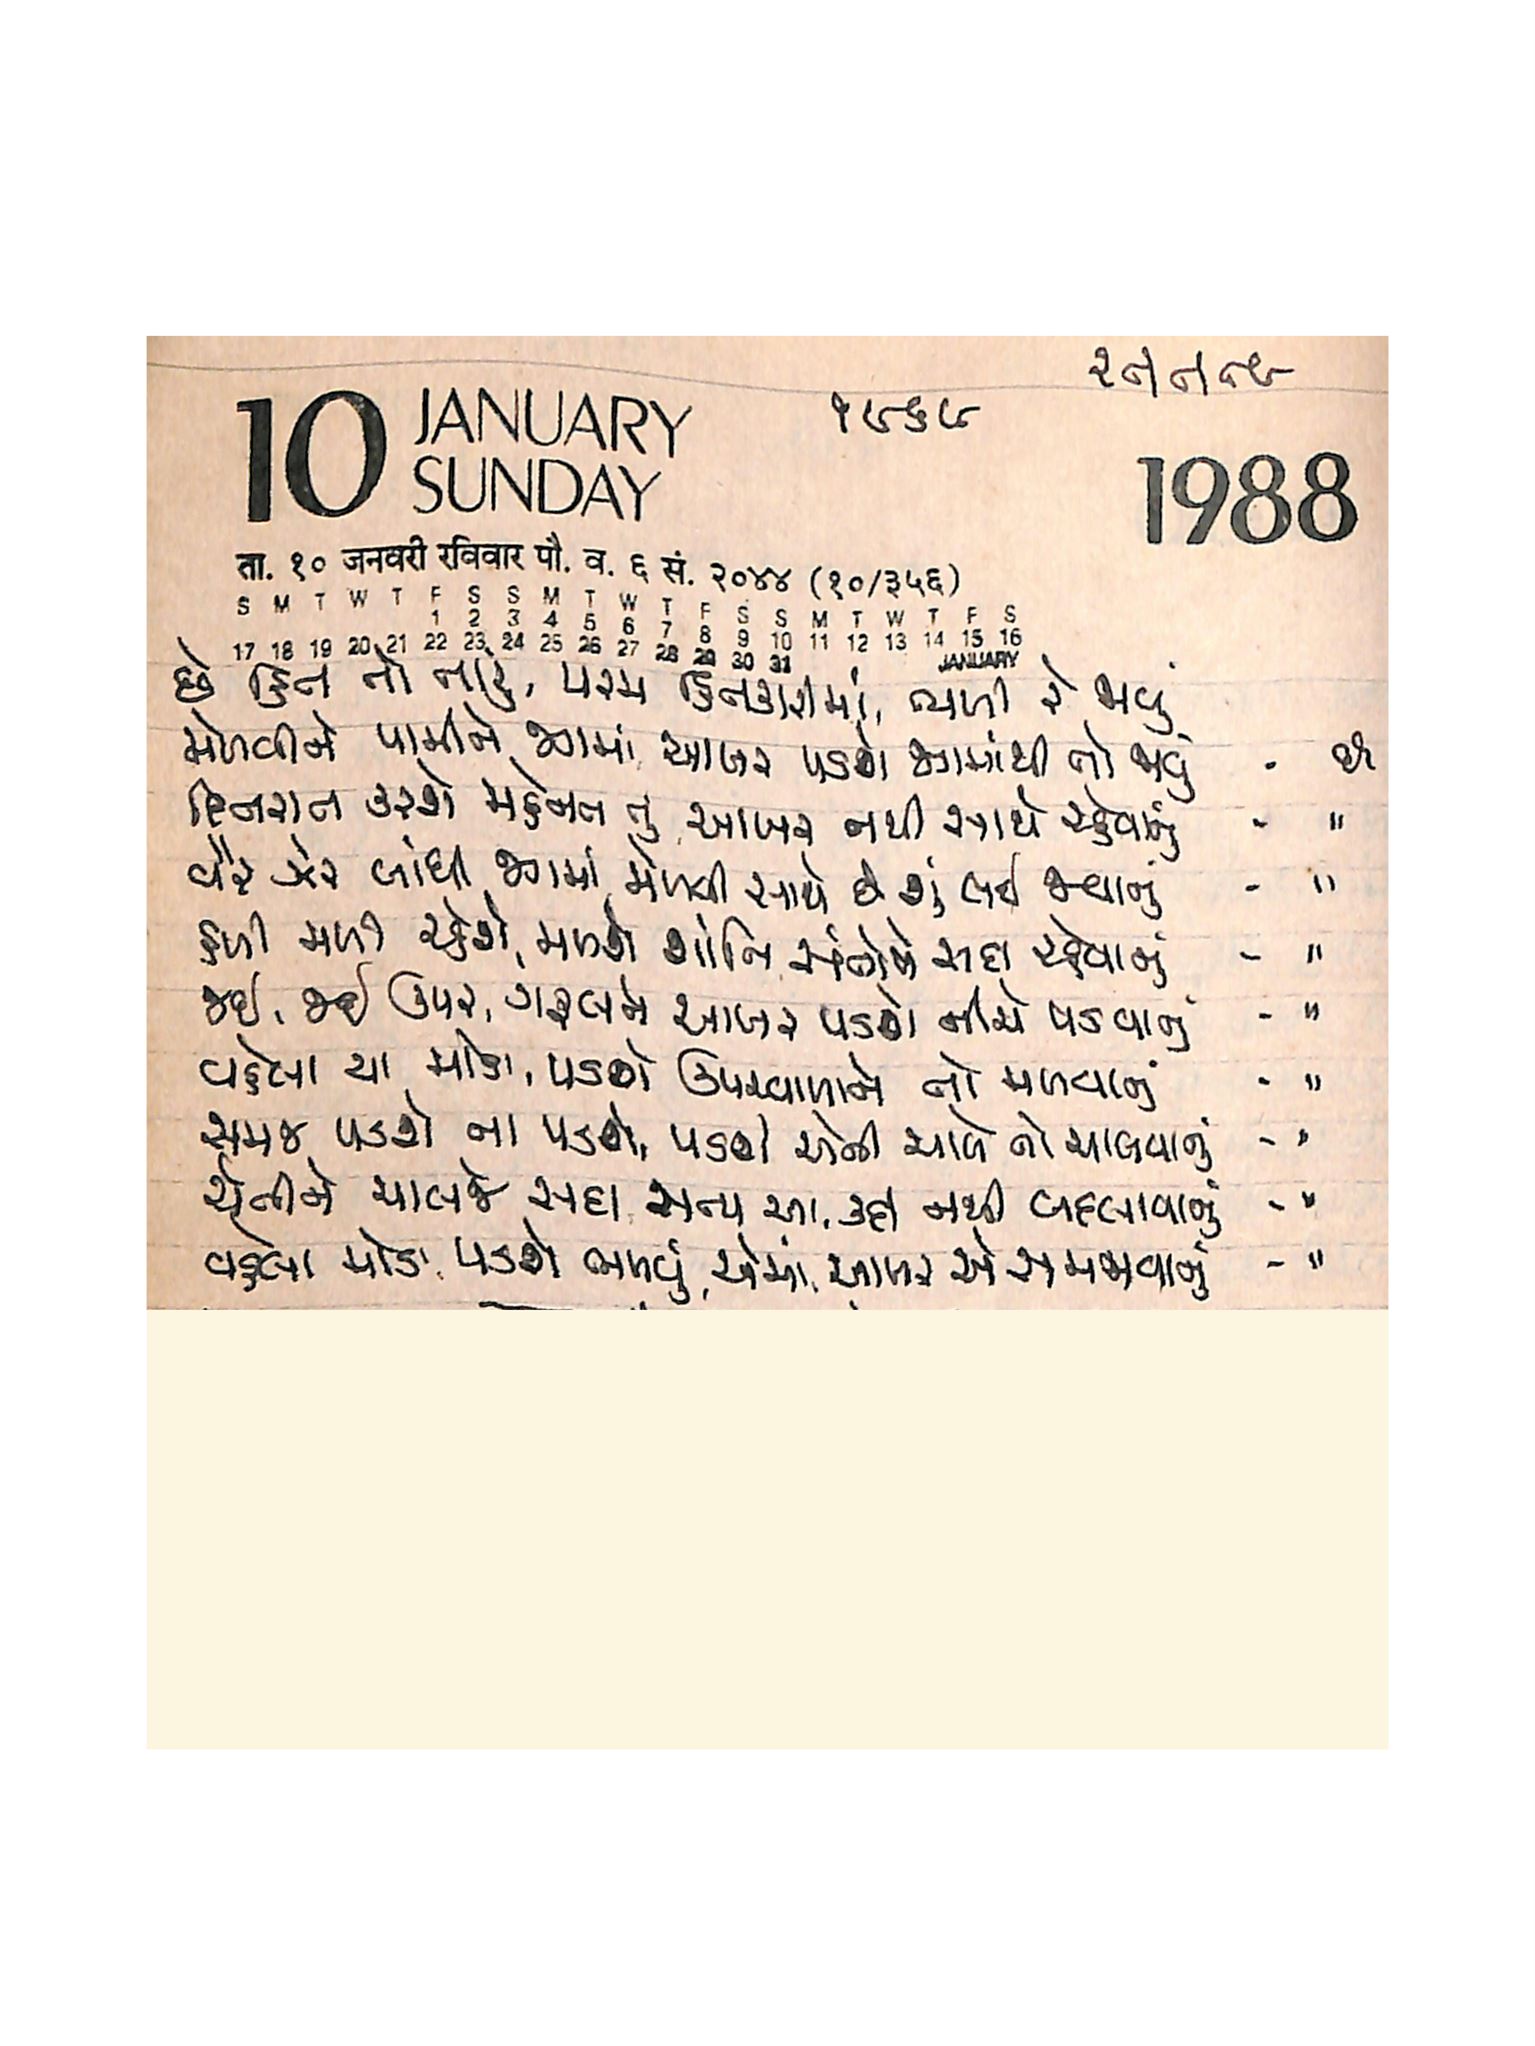 10 JANUARY
SUNDAY
૧૯૬૯
1988
ता. १० जनवरी रविवार पौ. व. ६ सं. २०४४ (१०/३५६)
S M T W T F S S M T W T F S S M T W T F S
1 2 3 4 5 6 7 8 9 10 11 12 13 14 15 16
17 18 19 20 21 22 23 24 25 26 27 28 29 30 31 JANUARY
છે હિત તો તારું, પરમ હિતકારીમાં, મળી રે જાવું
મેળવીને પામીને જગમાં આખર પડશે જગમાંથી તો જાવું - છે
દિનરાત કરશે મહેનત તું આખર નથી સાથે રહેવાનું - "
વૈર ઝેર બાંધી જગમાં મેળવી સાથે છે શું લઈ જવાનું - "
હળી મળી રહેશે, મળશે શાંતિ સંતોષે સદા રહેવાનું - "
જઈ, જઈ ઉપર, ગફલતે આખર પડશે નીચે પડવાનું - "
વહેલા યા મોડા, પડશે ઉપરવાળાને તો મળવાનું - "
સમજ પડશે ના પડશે, પડશે એની ચાલે તો ચાલવાનું - "
ચેતીને ચાલજે સદા સત્ય આ, કદી નથી બદલાવાનું - "
વહેલા મોડા પડશે ભળવું એમાં, આખર એ સમજાવાનું - "